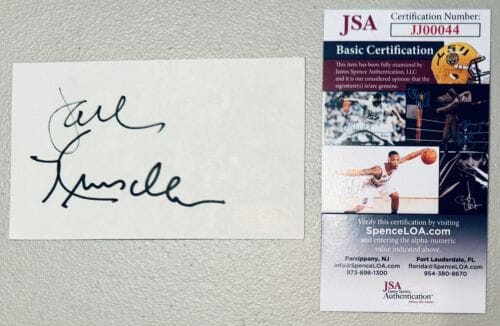 Jack
Kruschen
JSA
Certification Number:
JJ00044
Basic Certification
This item has been fully examined by
James Spence Authentication, LLC
and it is our considered opinion that the
signature(s) is/are genuine.
Verify this certification by visiting
SpenceLOA.com
and entering the alpha-numeric
value indicated above.
Parsippany, NJ
info@SpenceLOA.com
973-898-1300
Fort Lauderdale, FL
florida@SpenceLOA.com
954-380-8670
JSA
James Spence
Authentication